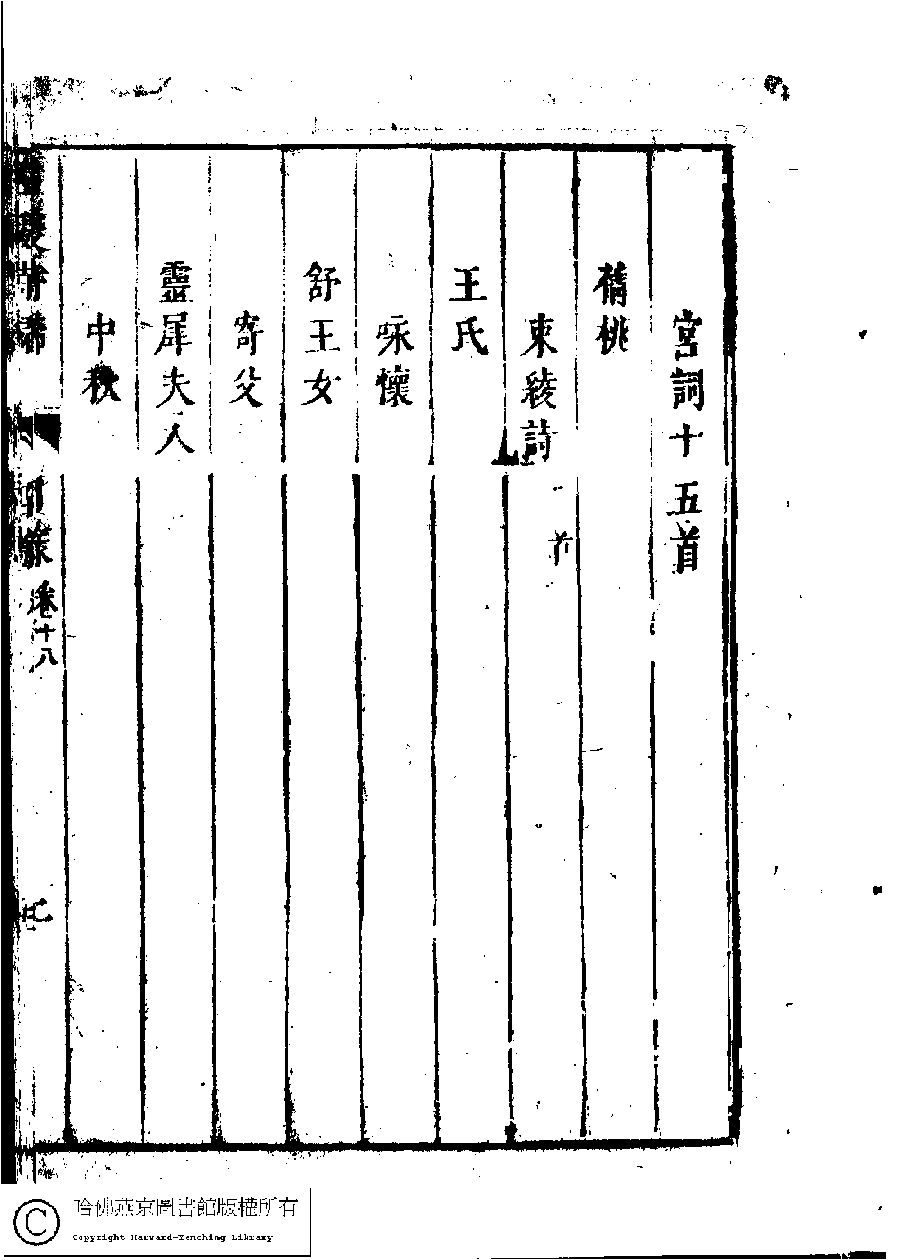 宮詞十五首
蒨桃
束綾詩 二首
王氏
咏懷
舒王女
寄父
靈犀夫人
中秋
目錄 卷十八
哈佛燕京圖書館版權所有
Copyright Harvard-Yenching Library